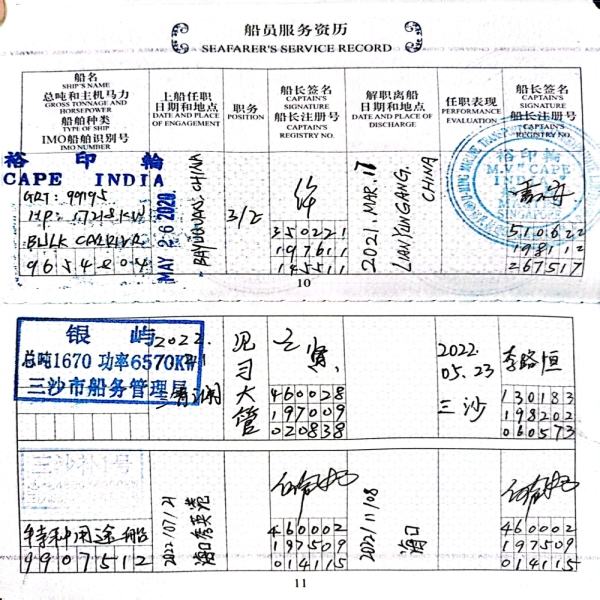 船员服务资历
SEAFARER'S SERVICE RECORD
船名
SHIP'S NAME
总吨和主机马力
GROSS TONNAGE AND
HORSEPOWER
船舶种类
TYPE OF SHIP
IMO船舶识别号
IMO NUMBER
上船任职
日期和地点
DATE AND PLACE
OF ENGAGEMENT
职务
POSITION
船长签名
CAPTAIN'S
SIGNATURE
船长注册号
CAPTAIN'S
REGISTRY NO.
解职离船
日期和地点
DATE AND PLACE OF
DISCHARGE
任职表现
PERFORMANCE
EVALUATION
船长签名
CAPTAIN'S
SIGNATURE
船长注册号
CAPTAIN'S
REGISTRY NO.
裕印轮
CAPE INDIA
GRT: 99195
HP: 17218KW
BULK CARRIER
9654804
MAY 26 2020
BAYUQUAN CHINA
3/E
350221
197611
145511
2021.MAR.17
LIANYUNGANG,
CHINA
裕印轮
M.V" CAPE
INDIA
SINGAPORE
510622
198112
267517
10
银屿
总吨1670 功率6570KW
三沙市船务管理局
2022.
见
习
大
管
460028
197009
020838
2022.
05.23
三沙
李路恒
130183
198202
060573
三沙补1号
特种用途船
9907512
2022/07/21
460002
197509
014115
2022/11/08
海口
460002
197509
014115
11